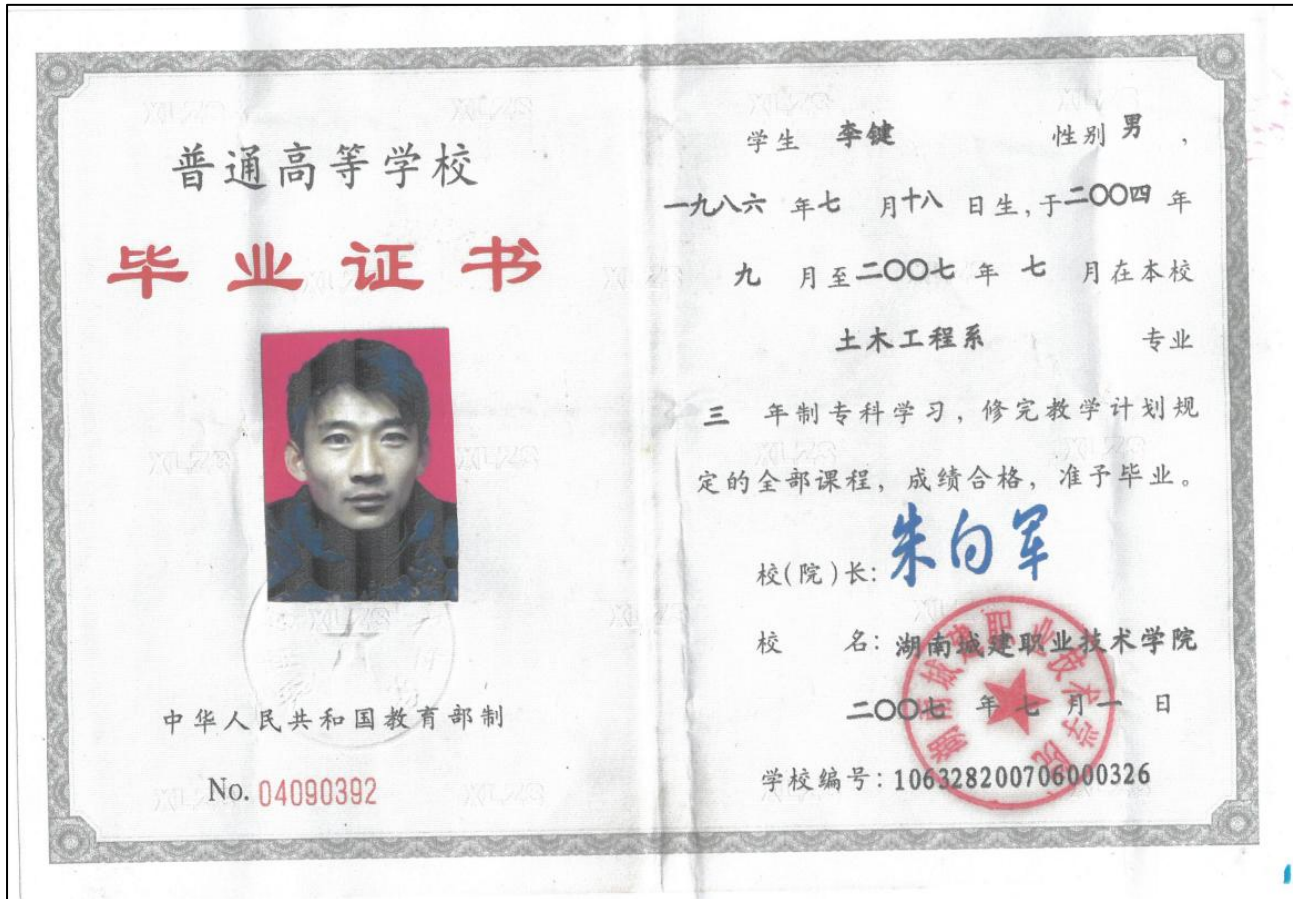 普通高等学校
毕业证书
中华人民共和国教育部制
No. 04090392
学生 李键 性别 男 ,
一九八六 年 七 月 十八 日生,于 二〇〇四 年
九 月至 二〇〇七 年 七 月在本校
土木工程系 专业
三 年制专科学习,修完教学计划规
定的全部课程,成绩合格,准予毕业。
校(院)长: 朱向军
校 名: 湖南城建职业技术学院
二〇〇七 年 七 月 一 日
学校编号: 106328200706000326
湖南城建职业技术学院